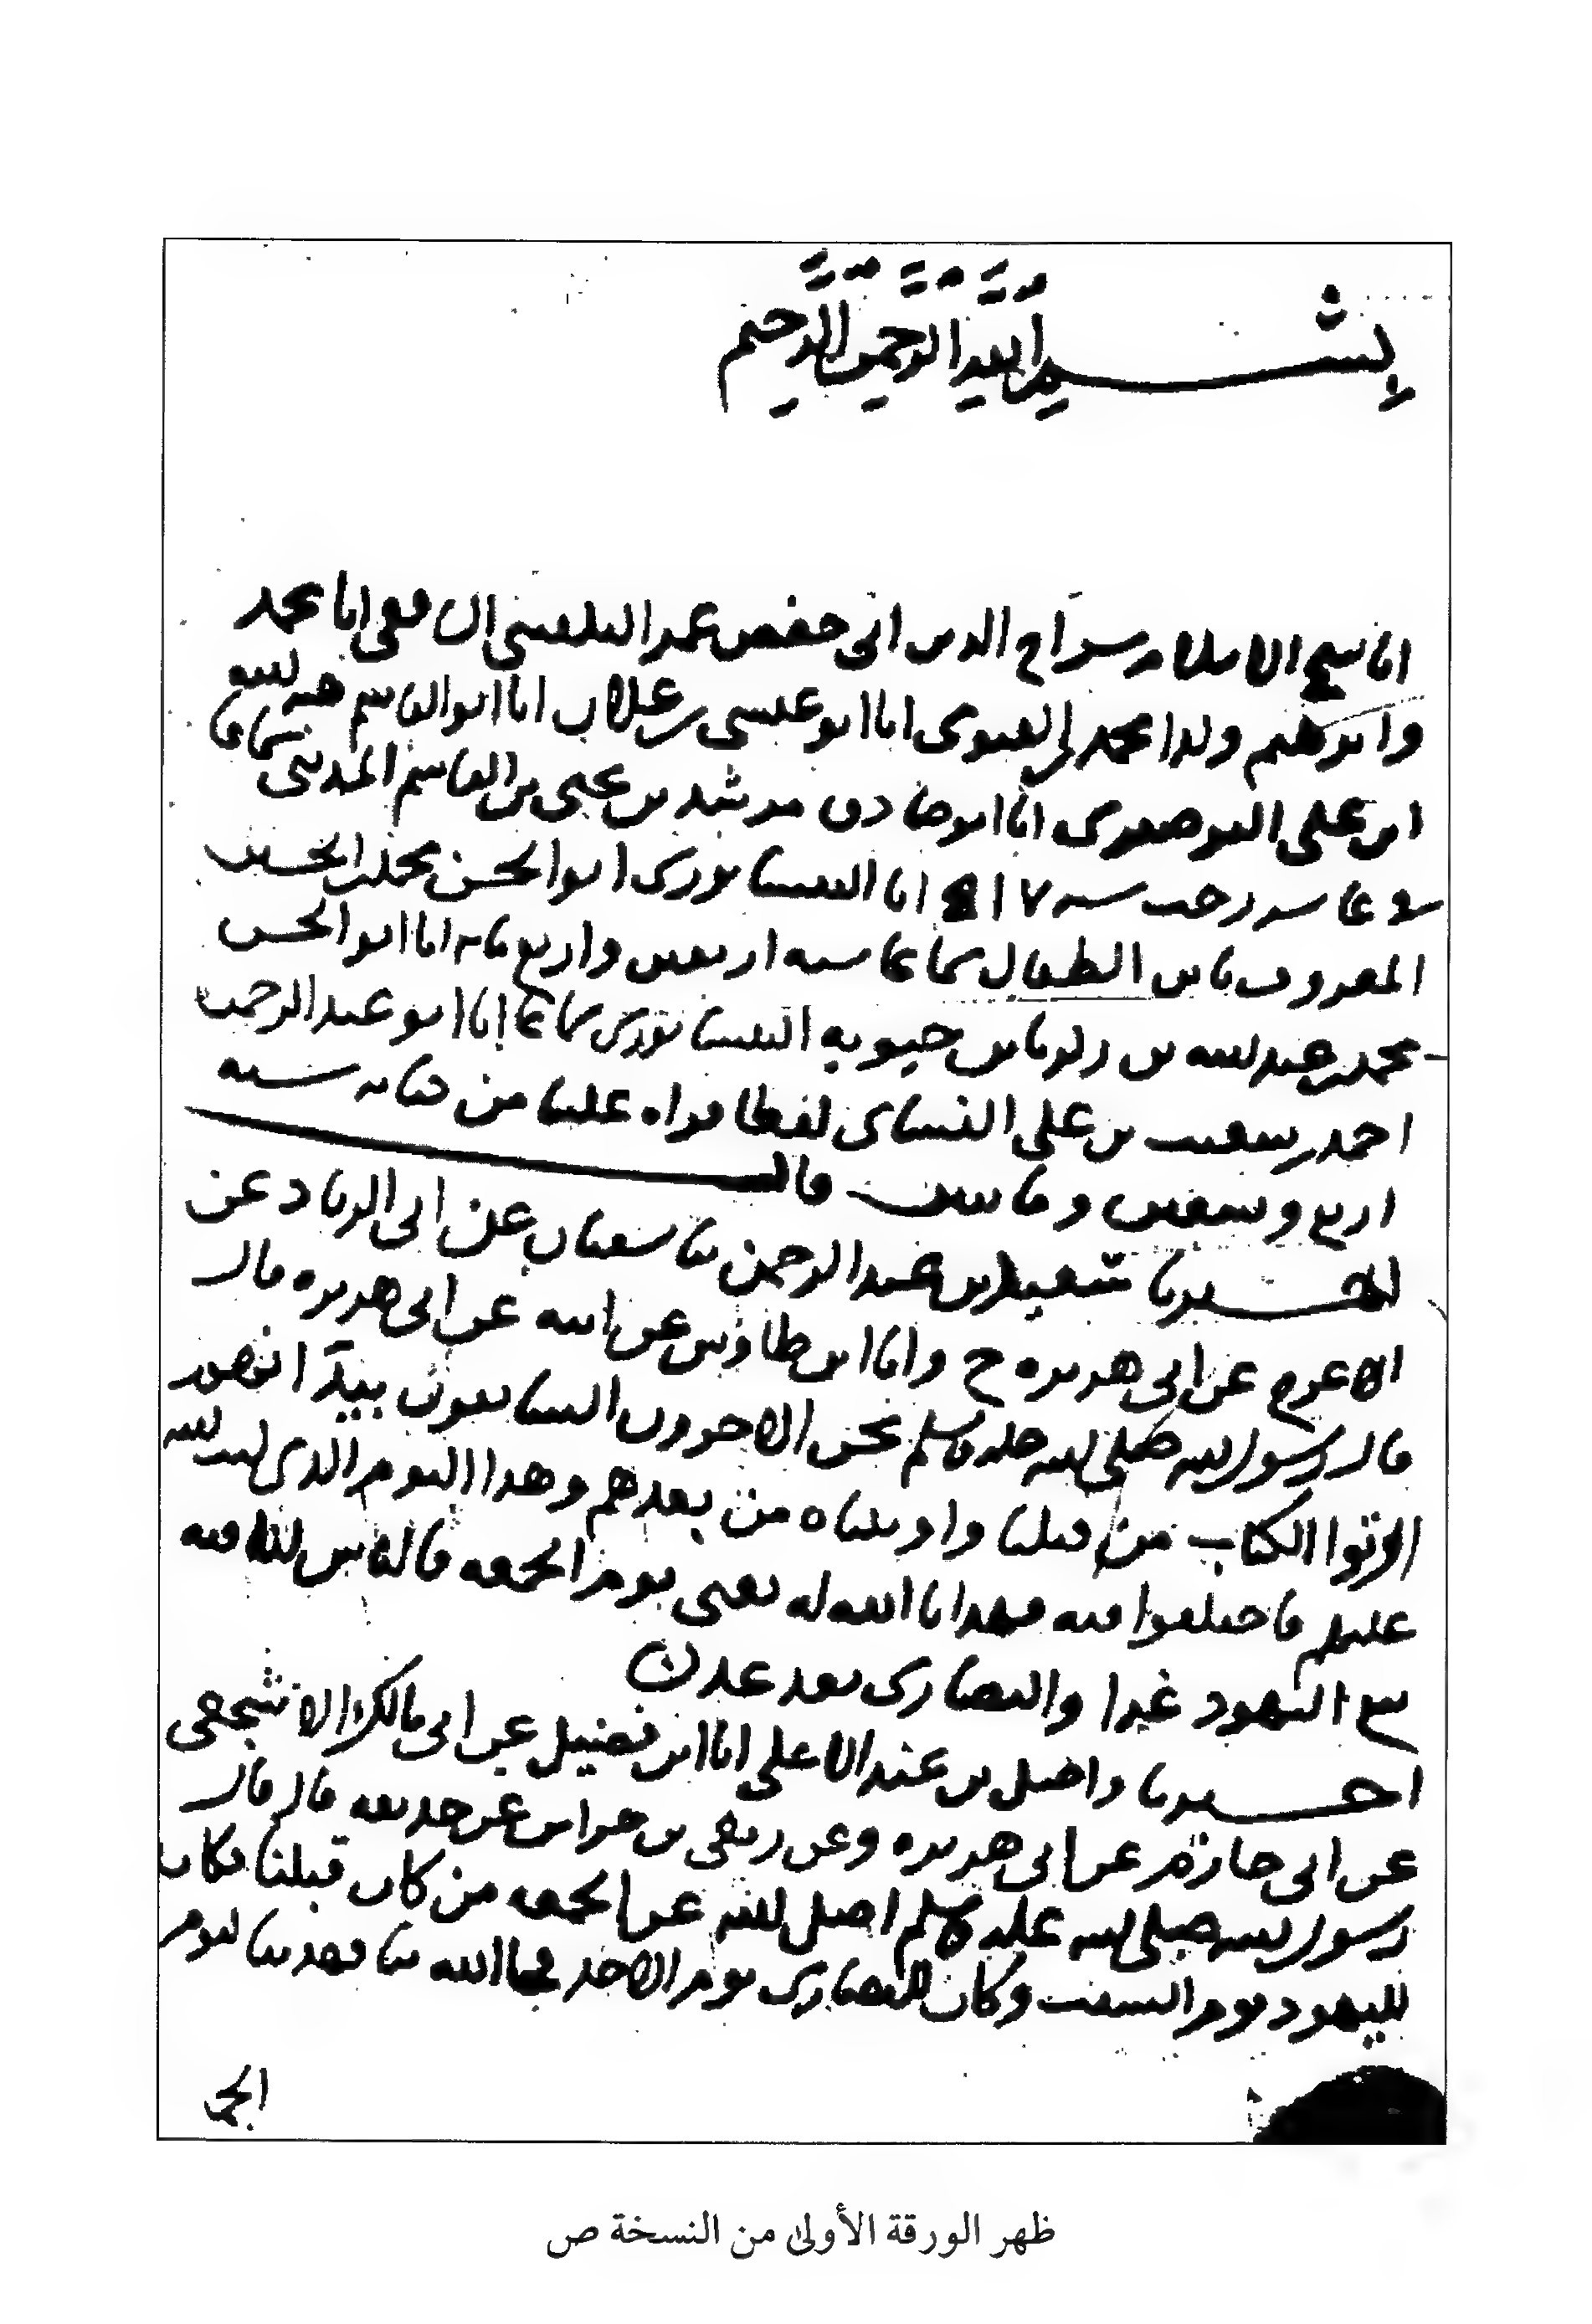 بسم الله الرحمن الرحيم
انا شيخ الاسلام سراج الدين ابي حفص عمر البلقيني الشافعي انا محمد
انا ابو عيسى بن علاق انا ابو القاسم هبة الله
ابن علي البوصيري انا ابو صادق مرشد بن يحيى بن القاسم المديني سماعا
رجب سنة ٥١٧ انا النيسابوري ابو الحسن محمد بن الحسين
المعروف بابن الطفال سماعا سنة اربعين واربع مايه انا ابو الحسن
محمد بن عبد الله بن زكريا بن حيويه النيسابوري سماعا انا ابو عبد الرحمن
احمد بن شعيب بن علي النساي لفظا قراه علينا من كتابه سنه
اربع وتسعين ومايتين قال
اخبرنا سعيد بن عبد الرحمن نا سفيان عن ابي الزناد عن
الاعرج عن ابي هريره ح وانا ابن طاوس عن ابيه عن ابي هريره قال
قال رسول الله صلى الله عليه وسلم نحن الاخرون السابقون بيد انهم
اوتوا الكتاب من قبلنا واوتيناه من بعدهم وهذا اليوم الذي كتب الله
عليهم فاختلفوا فيه فهدانا الله له يعني يوم الجمعه فالناس لنا فيه
تبع اليهود غدا والنصارى بعد غد
اخبرنا واصل بن عبد الاعلى انا ابن فضيل عن ابي مالك الاشجعي
عن ابي حازم عن ابي هريره وعن ربعي بن حراش عن حذيفه قال قال
رسول الله صلى الله عليه وسلم اضل الله عن الجمعه من كان قبلنا فكان
لليهود يوم السبت وكان للنصارى يوم الاحد فجا الله بنا فهدينا ليوم
الجمعه
ظهر الورقة الأولى من النسخة ص